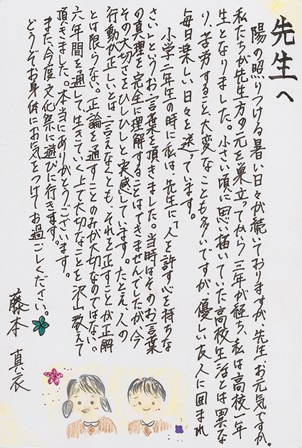 先生へ
陽の照りつける暑い日々が続いておりますが、先生、お元気ですか。
私たちが先生方の元を巣立ってから三年が経ち、私は高校一年
生となりました。小さい頃に思い描いていた高校生活とは異な
り、苦労すること、大変なことも多いですが、優しい友人に囲まれ
毎日楽しい日々を送っています。
小学二年生の時に私は、先生に「人を許す心を持ちな
さい」というお言葉を頂きました。当時はそのお言葉
の真理を完全に理解することはできませんでしたが、今
その大切さをひしひしと実感しています。たとえ人の
行動が正しいとは言えなくとも、それを正すことが正解
とは限らない。正論を通すことのみが大切なのではない。
六年間を通して、生きていく上で大切なことを沢山教えて
頂きました。本当にありがとうございます。
また、今度文化祭に遊びに行きます。
どうぞお身体にお気をつけてお過ごしください。
藤本 真衣